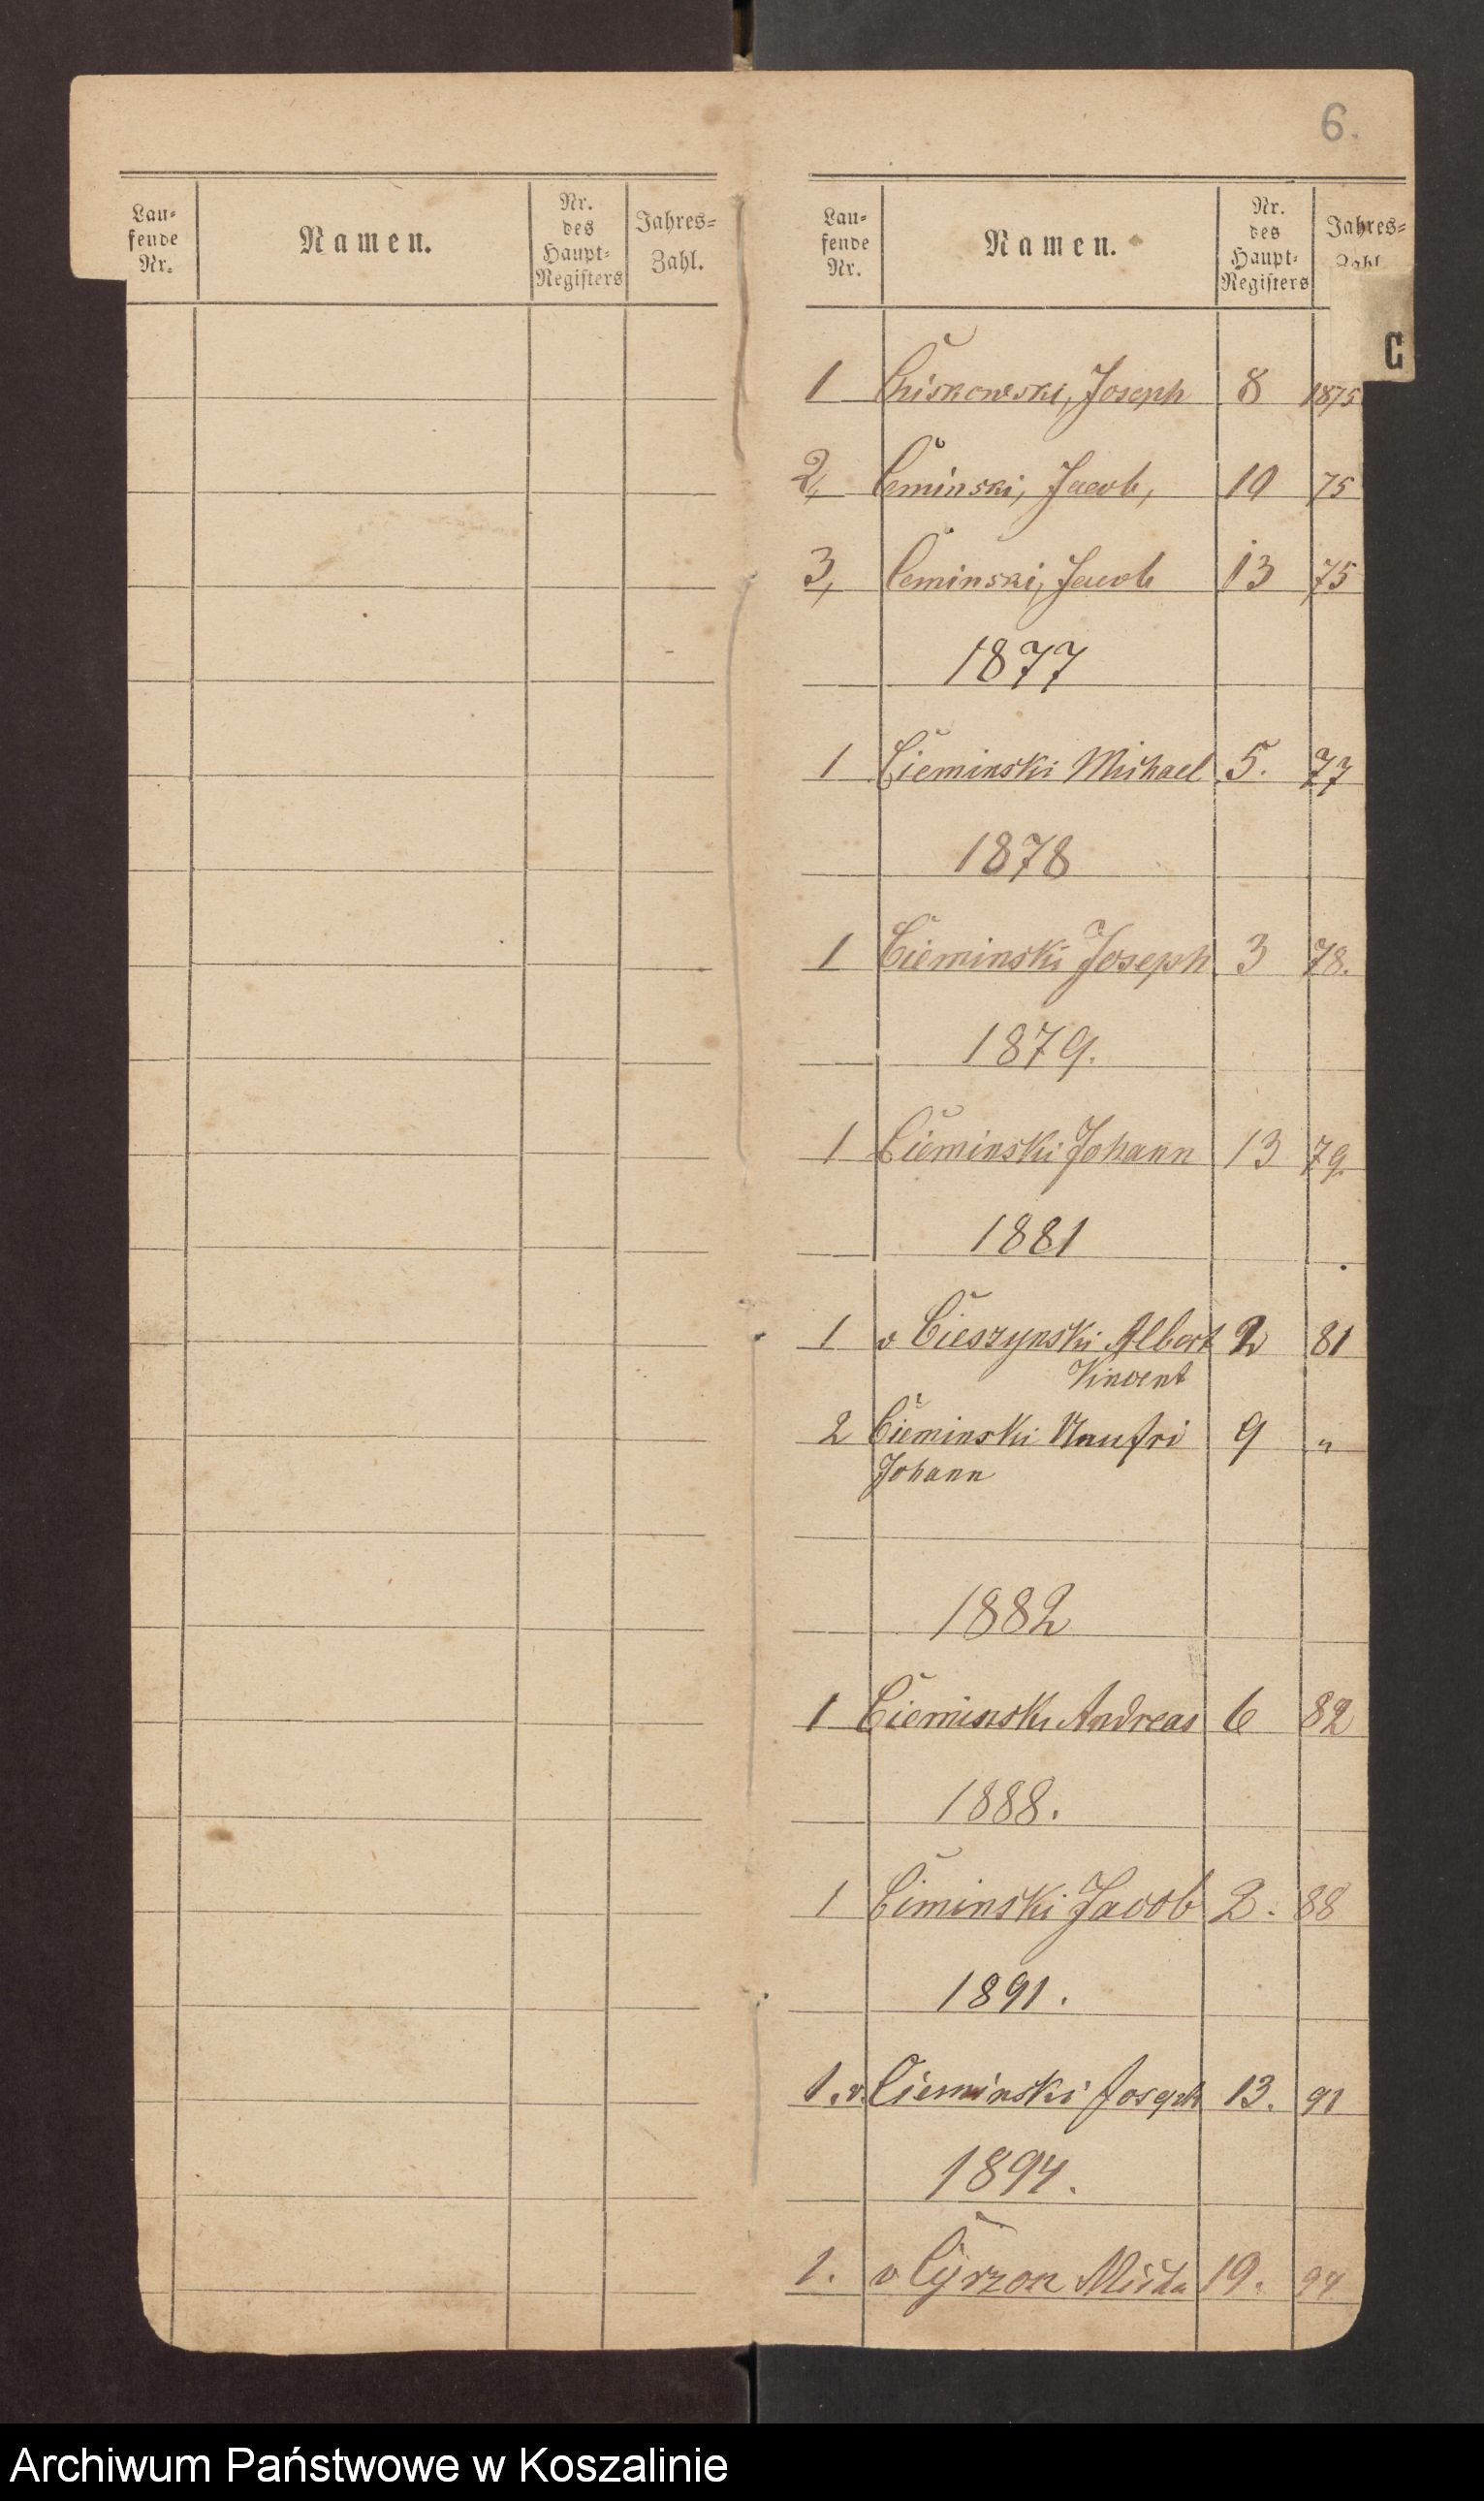 6.
Lau-
fende
Nr.
Namen.
Nr.
des
Haupt-
Registers
Jahres-
Zahl.
Lau-
fende
Nr.
Namen.
Nr.
des
Haupt-
Registers
Jahres-
Zahl
C
1 Chiskowski, Joseph 8 1875
2, Ceminski, Jacob, 10 75
3, Ceminski, Jacob 13 75
1877
1 Cieminski Michael 5. 77
1878
1 Cieminski Joseph 3 78.
1879.
1 Cieminski Johann 13 79.
1881
1 v Cieszynski Albert 2 81
Vincent
2 Cieminski 9 "
Johann
1882
1 Cieminski Andreas 6 82
1888.
1 Ciminski Jacob 2. 88
1891.
1. v. Cieminski Joseph 13. 91
1894.
1. v 19. 94
Archiwum Państwowe w Koszalinie